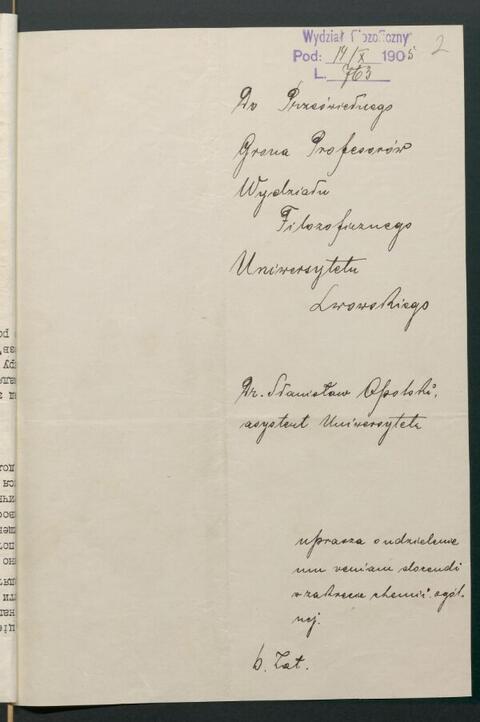 Wydział filozoficzny
Pod: 14/X 1905
L. 763
2
Do Prześwietnego
Grona Profesorów
Wydziału
Filozoficznego
Uniwersytetu
Lwowskiego
Dr. Stanisław Opolski,
asystent Uniwersytetu
uprasza o udzielenie
mu veniam docendi
w zakresie chemii ogól-
nej.
6. Zał.